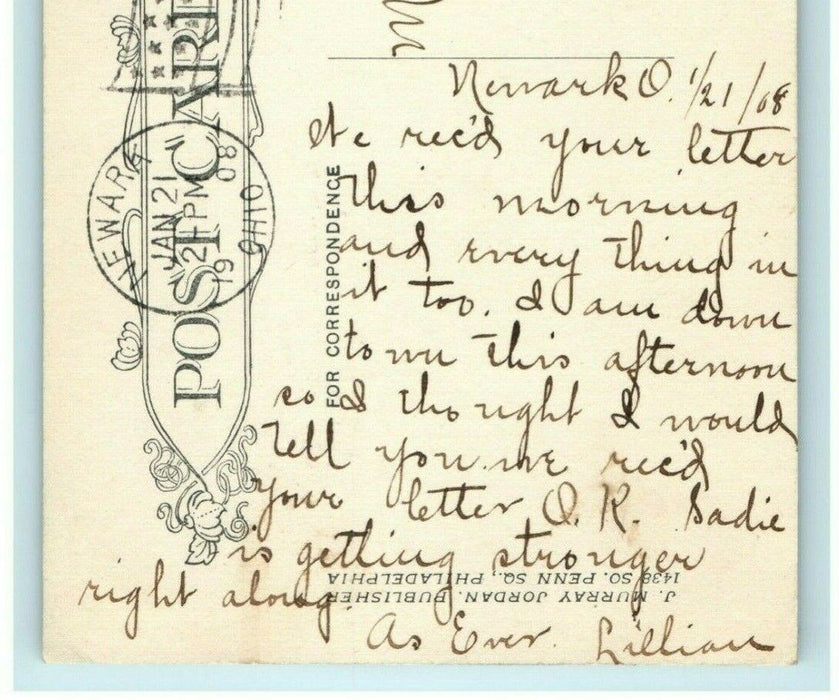 POST CARD
NEWARK
OHIO
JAN 21
2 PM
1908
FOR CORRESPONDENCE
Newark O. 1/21/08
We rec'd your letter
this morning
and every thing in
it too. I am down
town this afternoon
so I thought I would
tell you we rec'd
your letter O.K. Sadie
is getting stronger
right along.
As Ever Lillian
J. MURRAY JORDAN. PUBLISHER
1438 SO. PENN SQ. PHILADELPHIA